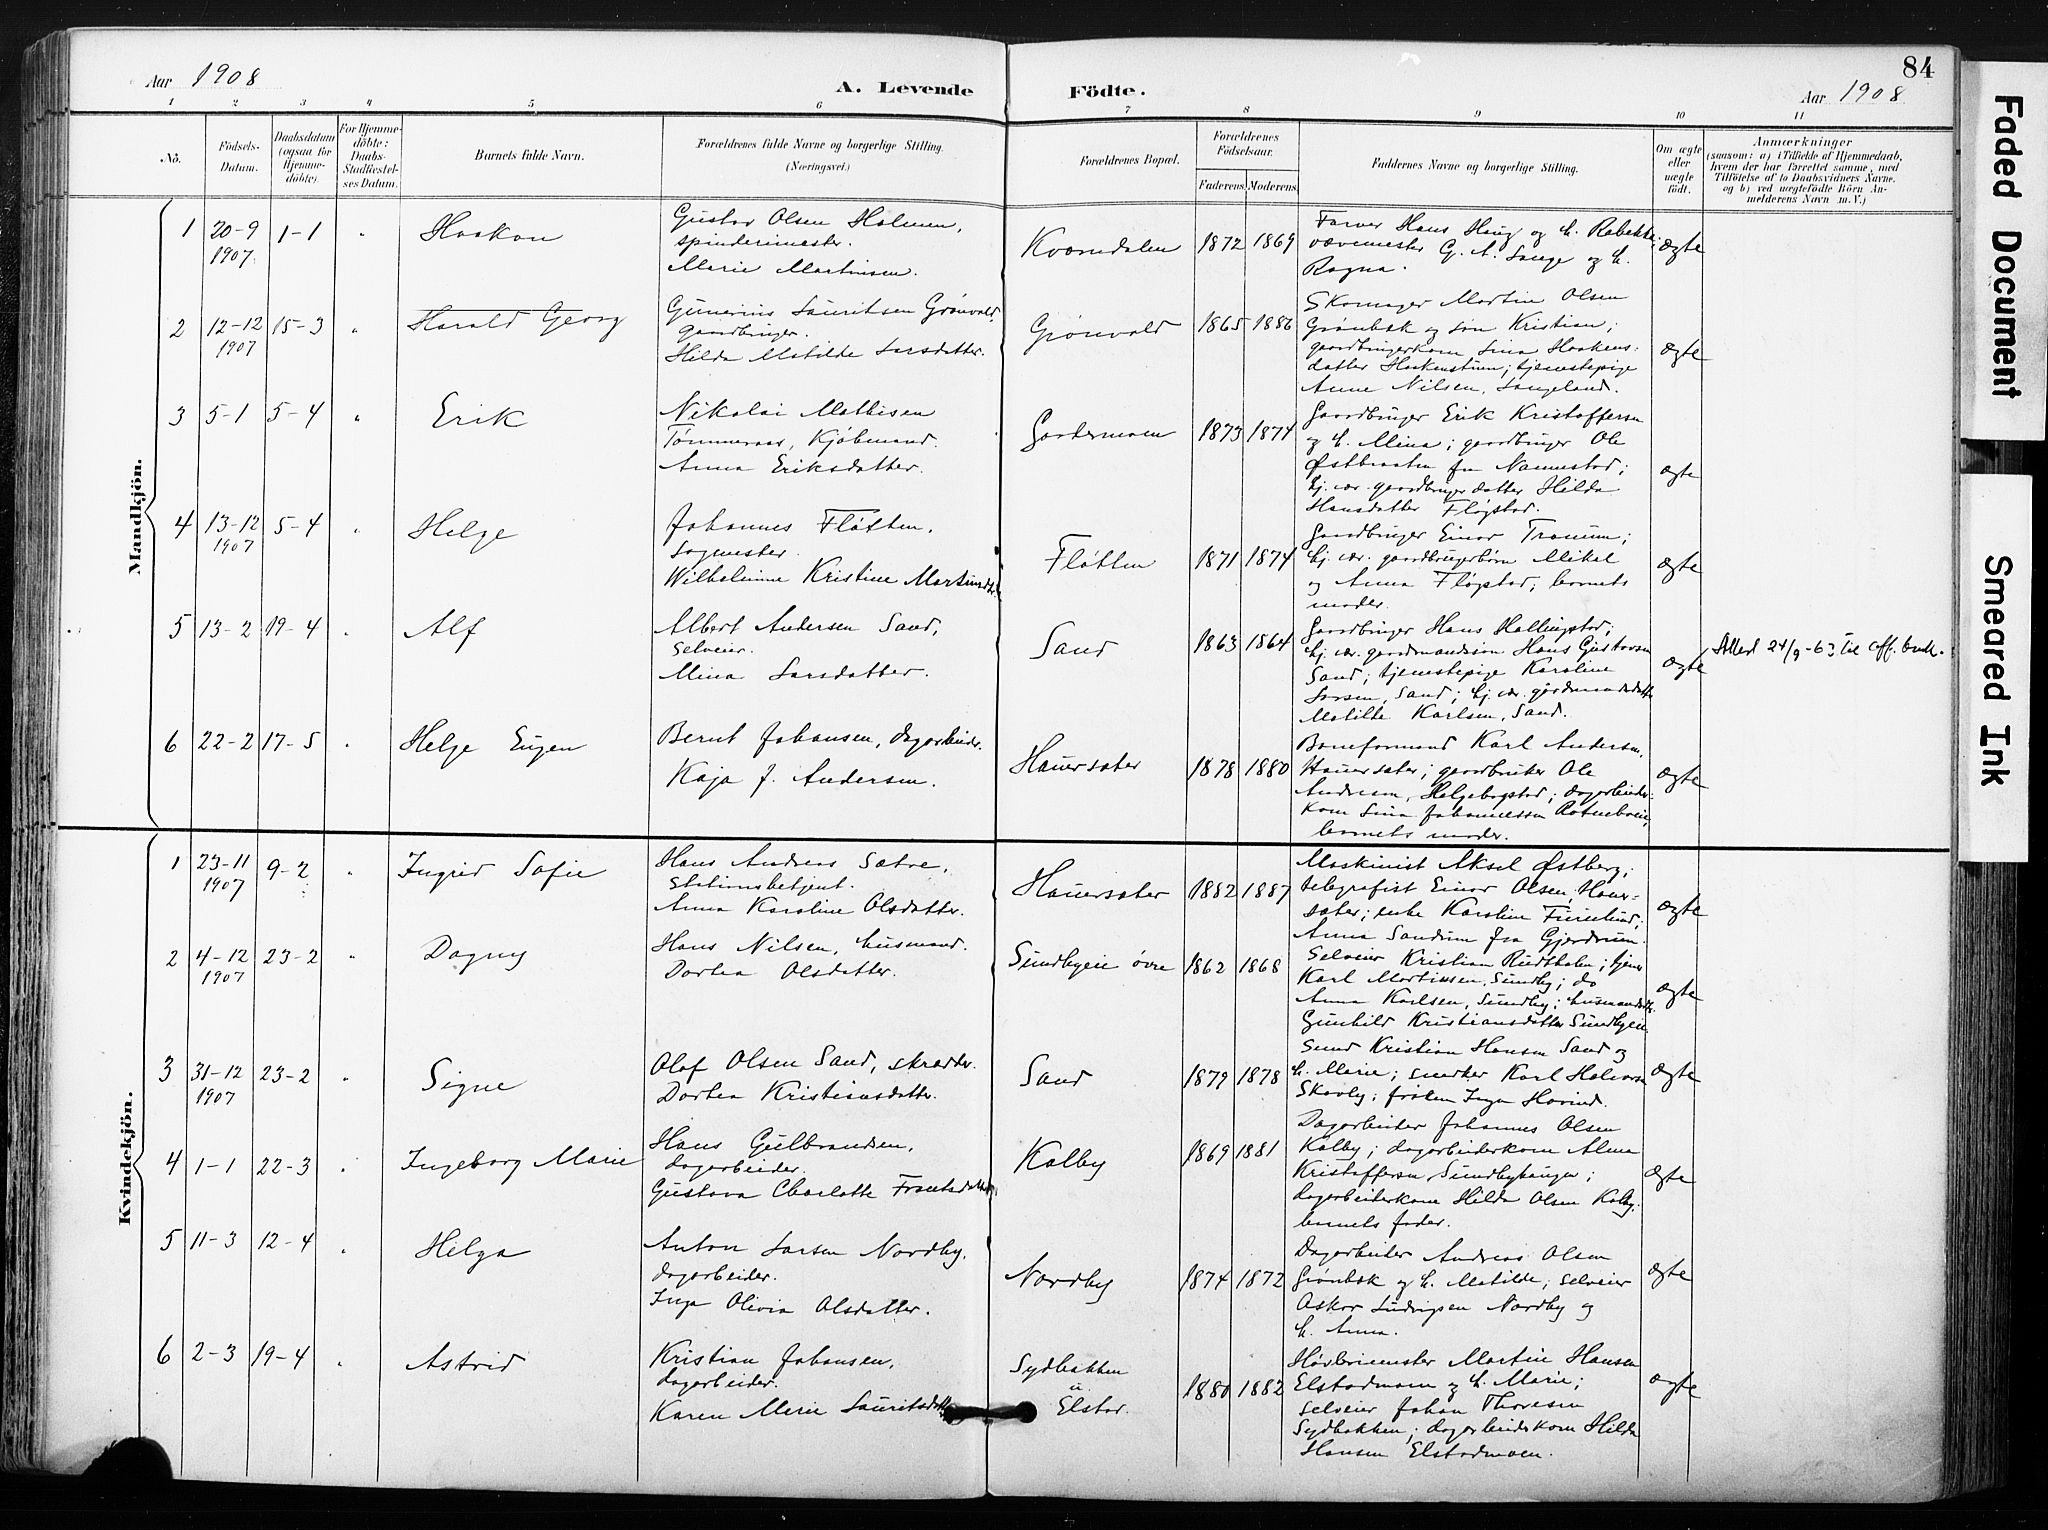 84
Aar 1908
A. Levende Födte.
Aar 1908
1 2 3 4 5 6 7 8 9 10 11
No.
Födsels-Datum.
Daabsdatum (ogsaa for Hjemme-döbte).
For Hjemme-döbte: Daabs-Stadfæstel-ses Datum.
Barnets fulde Navn.
Forældrenes fulde Navne og borgerlige Stilling.
(Næringsvei.)
Forældrenes Bopæl.
Forældrenes Födselsaar.
Faderens. Moderens.
Faddernes Navne og borgerlige Stilling.
Om ægte eller uægte födt.
Anmærkninger
(saasom: a) i Tilfælde af Hjemmedaab,
hvem der har forrettet samme, med
Tilföielse af to Daabsvidners Navne,
og b) ved uægtefödte Börn An-
melderens Navn m. V.)
Mandkjön.
1 20-9 1907 1-1 " Haakon
Gustav Olsen Holmen,
spinderimester.
Marie Martinsen.
Kværndalen 1872 1869
Farver Hans Haug og h. Rebekka;
vævemester G. A. Lange og h.
Ragna.
ægte
2 12-12 1907 15-3 " Harald Georg
Gunerius Lauritsen Grønvold,
gaardbruger.
Hilda Matilde Larsdatter.
Grønvold 1865 1886
Skomager Martin Olsen
Grønbæk og søn Kristian;
gaardbrugerkone Lina Haakens-
datter Haakenstuen; tjenestepige
Anne Nilsen, Langeland.
ægte
3 5-1 5-4 " Erik
Nikolai Mathisen
Tømmeraas, Kjøbmand.
Anna Eriksdatter.
Gardermoen 1873 1874
Gaardbruger Erik Kristoffersen
og h. Mina; gaardbruger Ole
Østbraaten fra Nannestad;
hj. vær. gaardbrugerdatter Hilda
Hansdatter Fløgstad.
ægte
4 13-12 1907 5-4 " Helge
Johannes Fløtten,
sagmester.
Wilhelmine Kristine Martinsdtr.
Fløtten 1871 1874
Gaardbruger Einar Tranum;
hj. vær. gaardbrugerbørn Mikal
og Anna Fløgstad; barnets
moder.
ægte
5 13-2 19-4 " Alf
Albert Andersen Sand,
selveier.
Mina Larsdatter.
Sand 1863 1864
Gaardbruger Hans Hallingstad;
hj. vær. gaardmandssøn Hans Gustavsen
Sand; tjenestepige Karoline
Larsen, Sand; hj. vær. gårdmandsdatter
Matilde Karlsen, Sand.
ægte
Attest 24/9-63 til off. bruk.
6 22-2 17-5 " Helge Eugen
Bernt Johansen, dagarbeider.
Kaja J. Andersen.
Hauersæter 1878 1880
Baneformand Karl Andersen,
Hauersæter; gaardbruker Ole
Andersen, Helgebostad; dagarbeider-
kone Lina Johannessen
barnets moder.
ægte
Kvindekjön.
1 23-11 1907 9-2 " Ingrid Sofie
Hans Andreas Sætre,
stationsbetjent.
Anna Karoline Olsdatter.
Hauersæter 1882 1887
Maskinist Aksel Østberg;
telegrafist Einar Olsen, Hauer-
sæter; enke Karoline Furulund;
Anna Sandum fra Gjerdrum.
ægte
2 4-12 1907 23-2 " Dagny
Hans Nilsen, husmand.
Dortea Olsdatter.
Sundbyeie øvre 1862 1868
Selveier Kristian Rudshalen; tjener
Karl Martinsen, Sundby; do
Anna Karlsen, Sundby; husmandsdtr.
Gunhild Kristiansdatter Sundbyeie
ægte
3 31-12 1907 23-2 " Signe
Olaf Olsen Sand, skrædder.
Dortea Kristiansdatter.
Sand 1879 1878
Smed Kristian Hansen Sand og
h. Marie; snedker Karl Halvorsen
Skovly; frøken Inga Hovind.
ægte
4 1-1 22-3 " Ingeborg Marie
Hans Gulbrandsen,
dagarbeider.
Gustava Charlotte Frantsdatter.
Kolby 1869 1881
Dagarbeider Johannes Olsen
Kolby; dagarbeiderkone Alma
Kristoffersen Sundbyhaugen;
dagarbeiderkone Hilda Olsen Kolby.
barnets fader.
ægte
5 11-3 12-4 " Helga
Anton Larsen Nordby,
dagarbeider.
Inga Olivia Olsdatter.
Nordby 1874 1872
Dagarbeider Andreas Olsen
Grønbæk og h. Matilde; selveier
Oskar Ludvigsen Nordby og
h. Anna.
ægte
6 2-3 19-4 " Astrid
Kristian Johansen,
dagarbeider.
Karen Marie Lauritsdatter
Sydbakken
u.
Elstad. 1880 1882
Høvlerimester Martin Hansen
Elstadmoen og h. Marie;
selveier Johan Thoresen
Sydbakken; dagarbeiderkone Hilda
Hansen Elstadmoen.
ægte
Faded Document
Smeared Ink